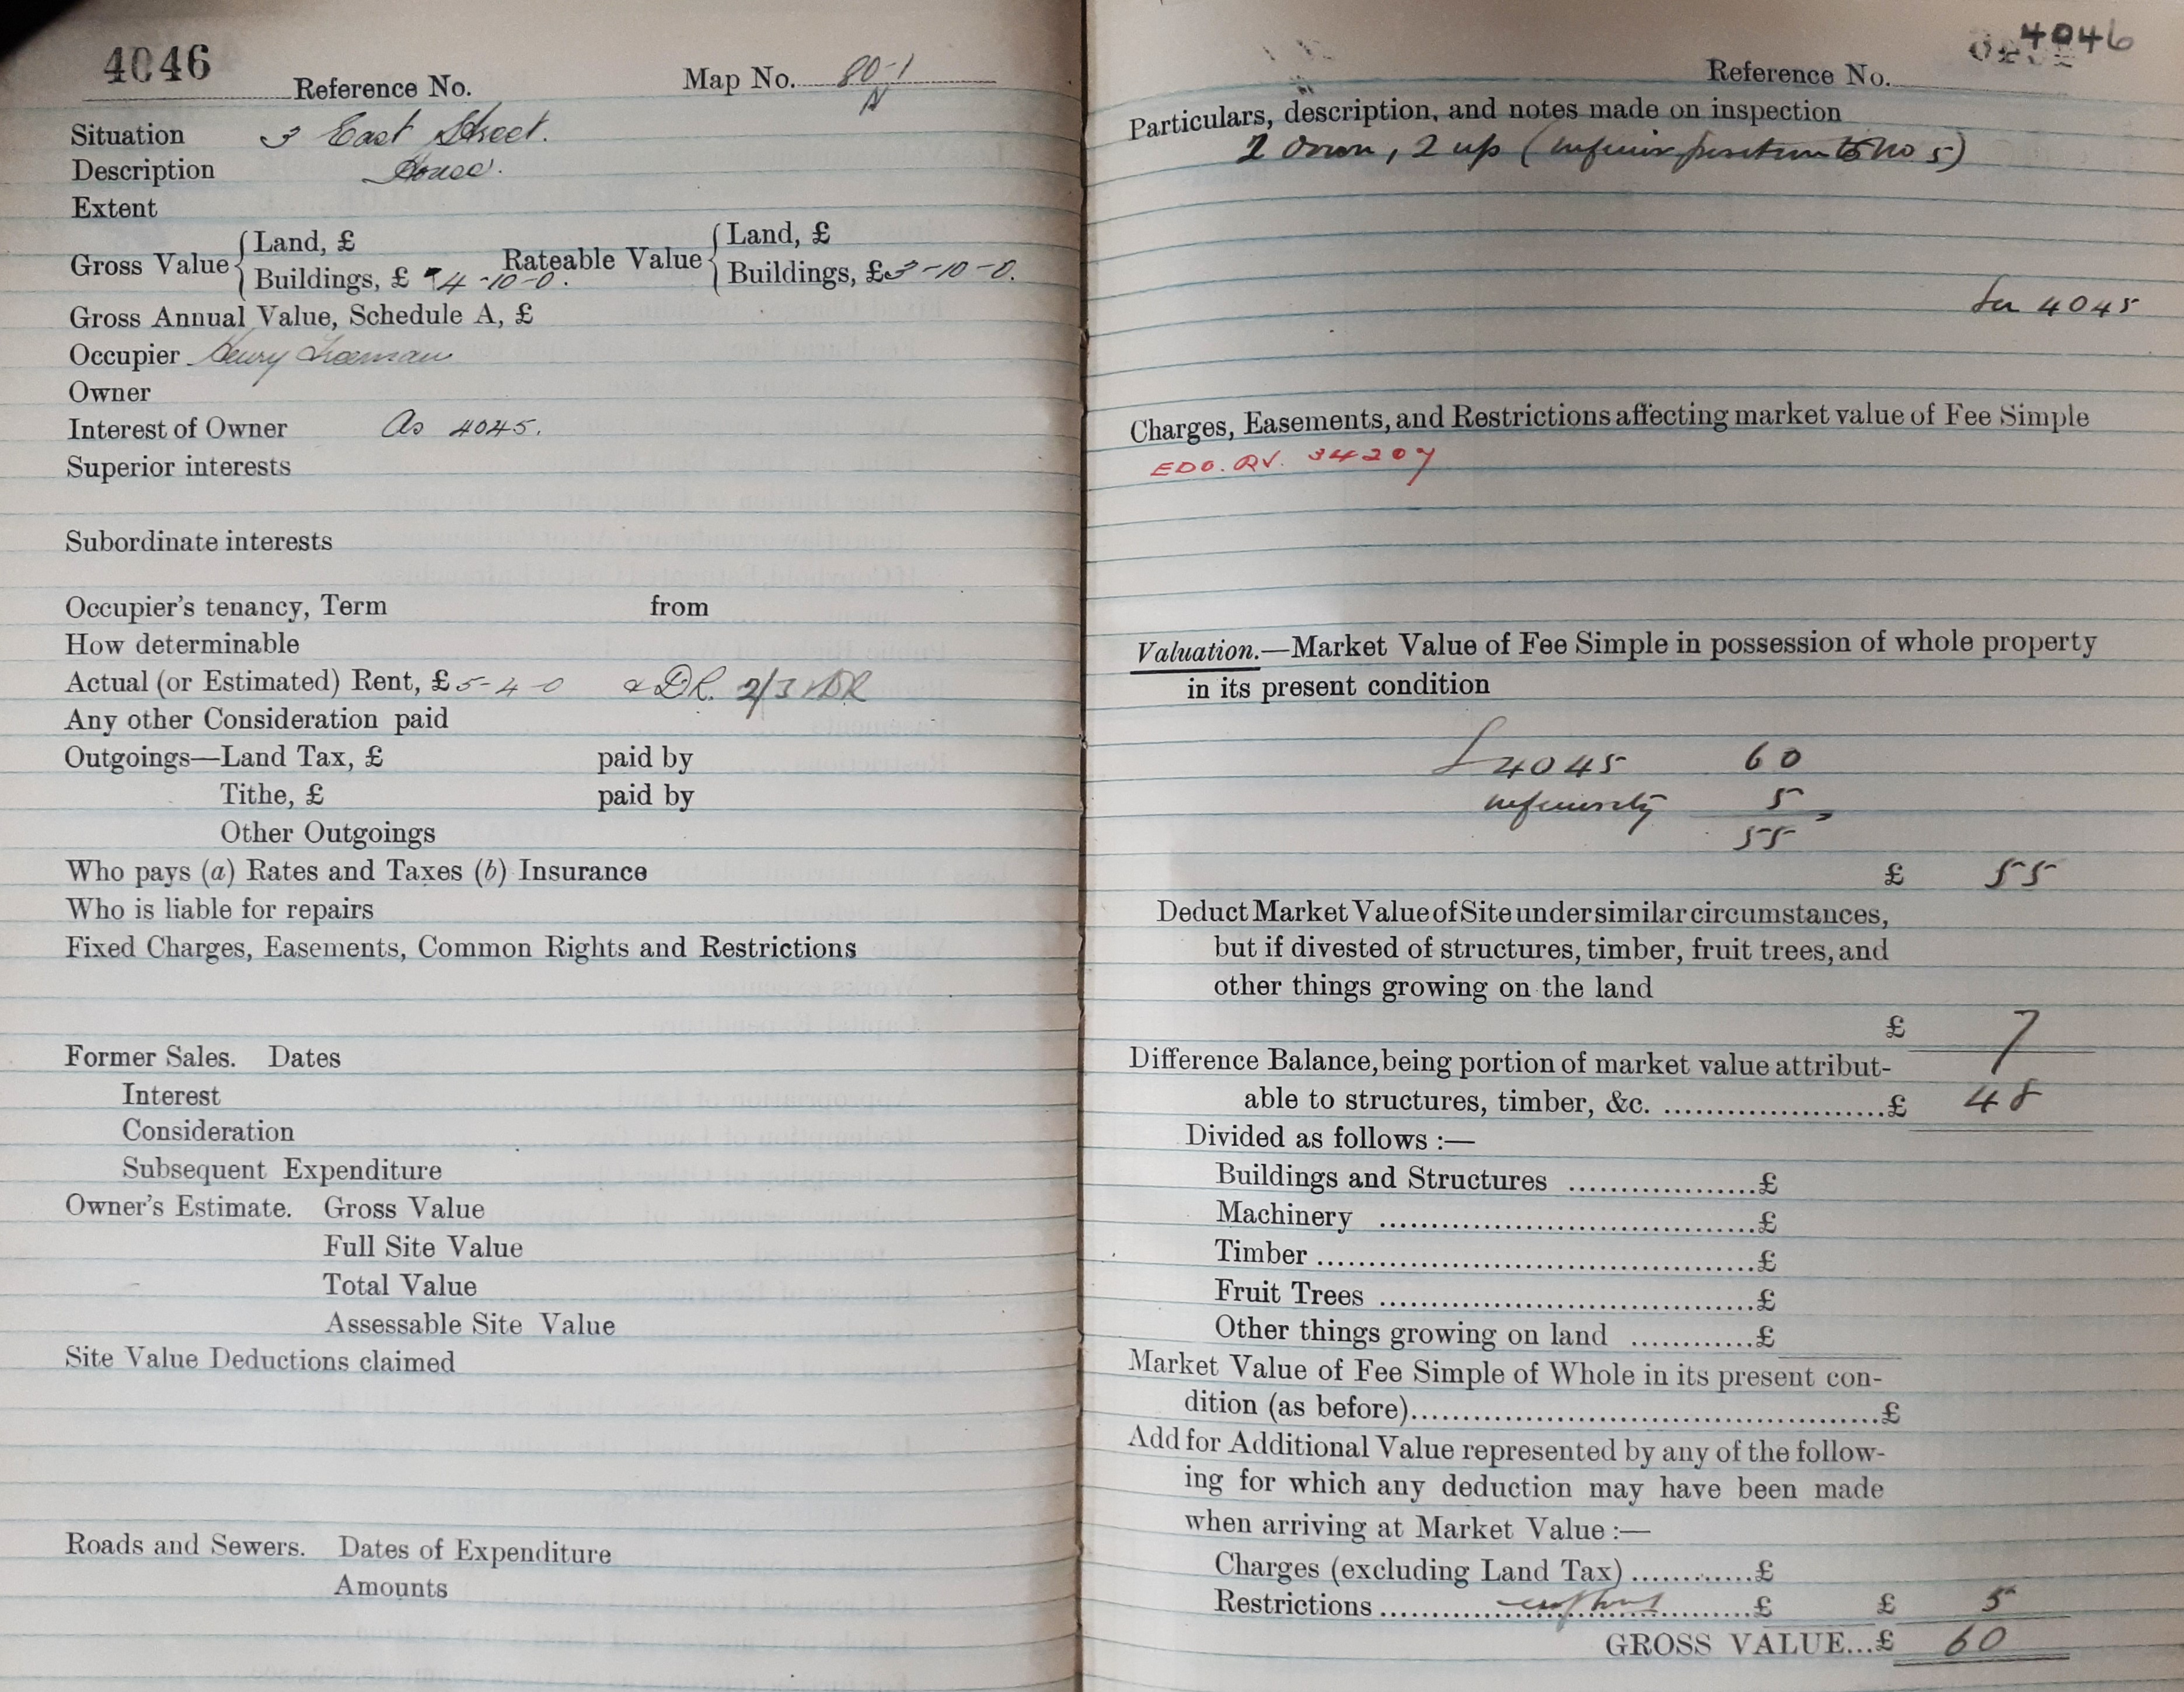 4046
Reference No. Map No. 80-1
N
Situation 3 East Street.
Description House.
Extent
Gross Value { Land, £ Rateable Value { Land, £
Buildings, £ 4-10-0. Buildings, £ 3-10-0.
Gross Annual Value, Schedule A, £
Occupier Henry Freeman
Owner
Interest of Owner As 4045.
Superior interests
Subordinate interests
Occupier's tenancy, Term from
How determinable
Actual (or Estimated) Rent, £ 5-4-0 & DR. 2/3 DR
Any other Consideration paid
Outgoings—Land Tax, £ paid by
Tithe, £ paid by
Other Outgoings
Who pays (a) Rates and Taxes (b) Insurance
Who is liable for repairs
Fixed Charges, Easements, Common Rights and Restrictions
Former Sales. Dates
Interest
Consideration
Subsequent Expenditure
Owner's Estimate. Gross Value
Full Site Value
Total Value
Assessable Site Value
Site Value Deductions claimed
Roads and Sewers. Dates of Expenditure
Amounts
4046
Reference No.
Particulars, description, and notes made on inspection
2 down, 2 up (inferior position to No 5)
4045
Charges, Easements, and Restrictions affecting market value of Fee Simple
EDO. RV. 34207
Valuation.—Market Value of Fee Simple in possession of whole property
in its present condition
4045 60
inferiority 5
55
£ 55
Deduct Market Value of Site under similar circumstances,
but if divested of structures, timber, fruit trees, and
other things growing on the land
£ 7
Difference Balance, being portion of market value attribut-
able to structures, timber, &c. ....................£ 48
Divided as follows :—
Buildings and Structures ..................£
Machinery ....................................£
Timber..........................................£
Fruit Trees ....................................£
Other things growing on land ............£
Market Value of Fee Simple of Whole in its present con-
dition (as before)............................................£
Add for Additional Value represented by any of the follow-
ing for which any deduction may have been made
when arriving at Market Value :—
Charges (excluding Land Tax)............£
Restrictions....................................£ £ 5
GROSS VALUE...£ 60